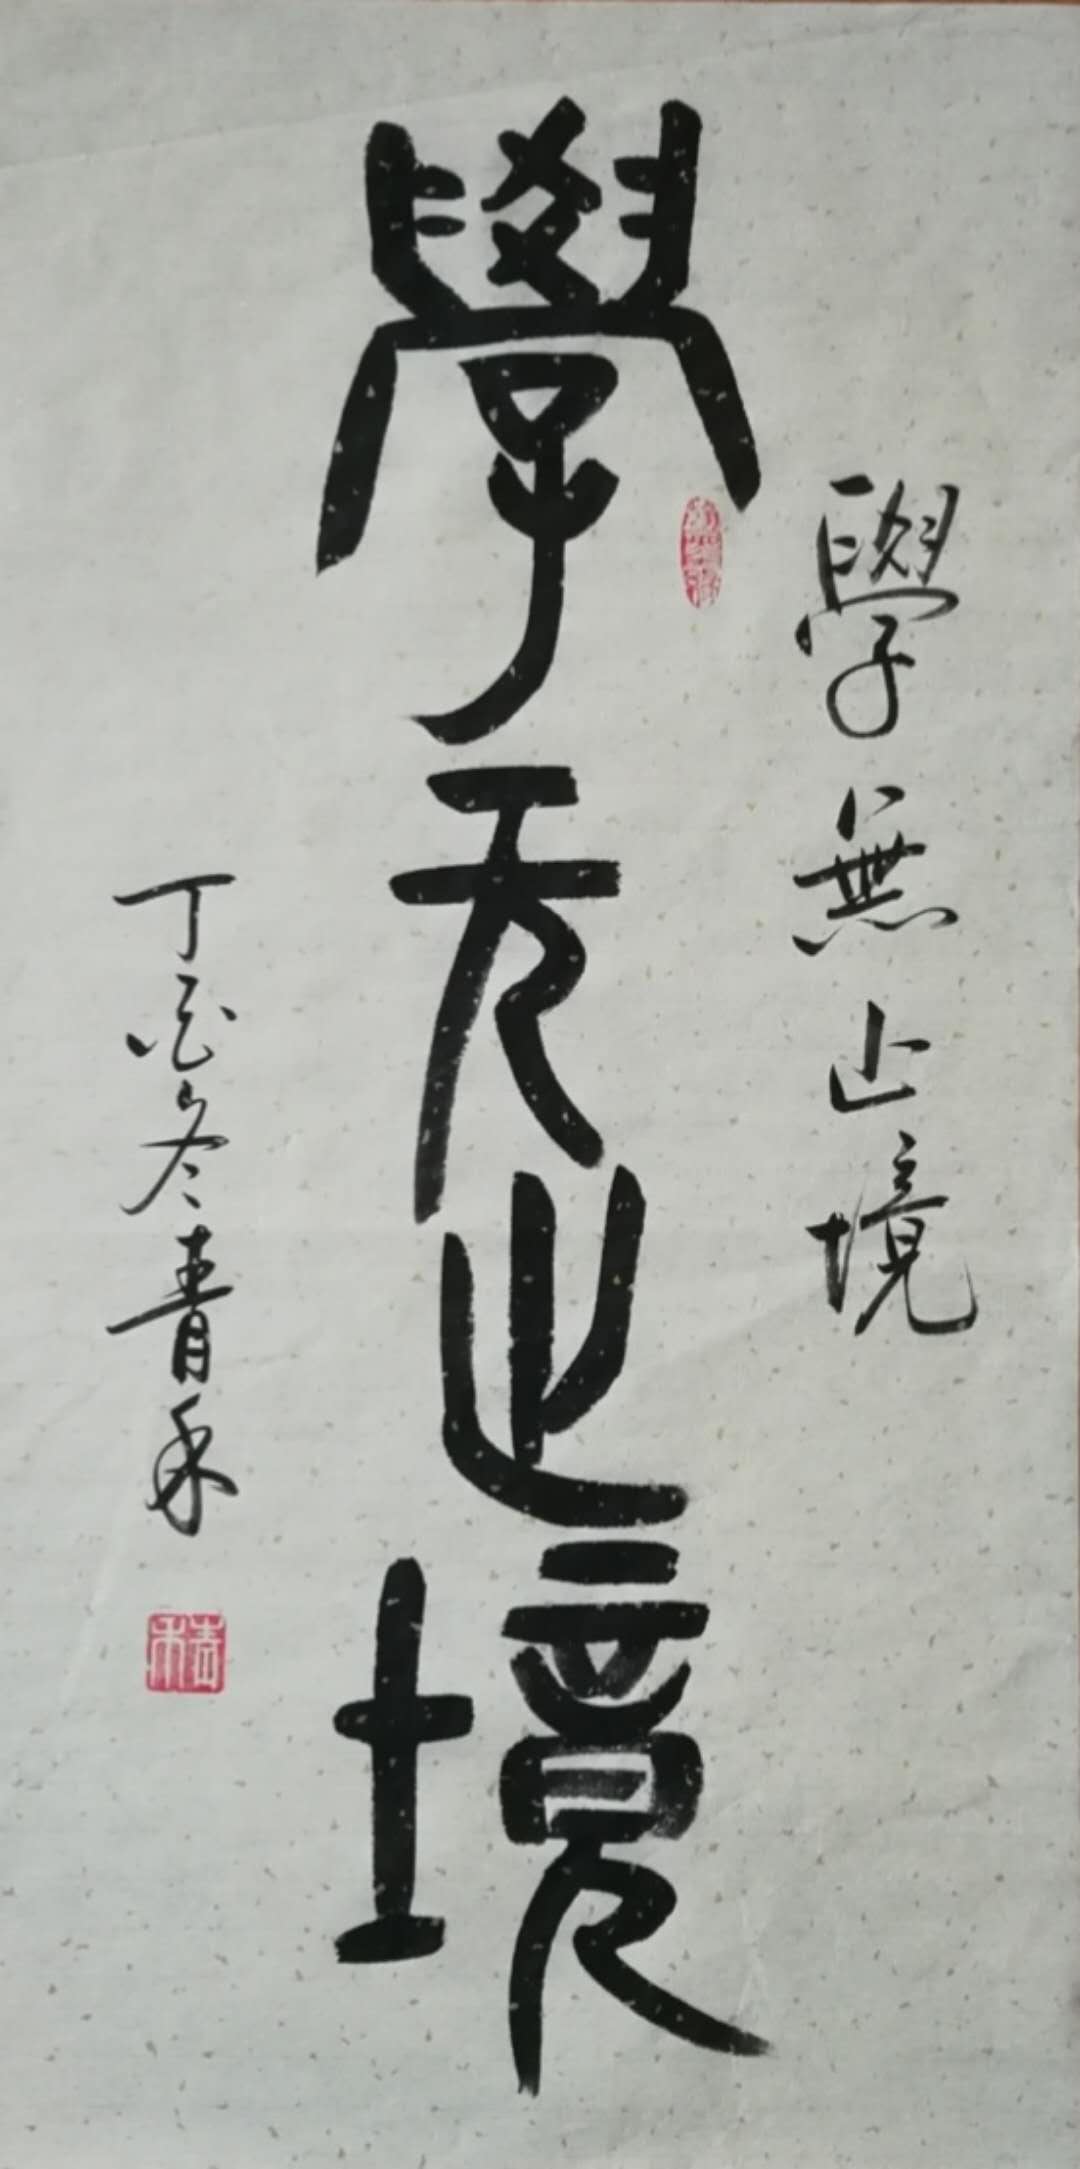 學無止境
學无止境
丁酉冬青禾
青禾